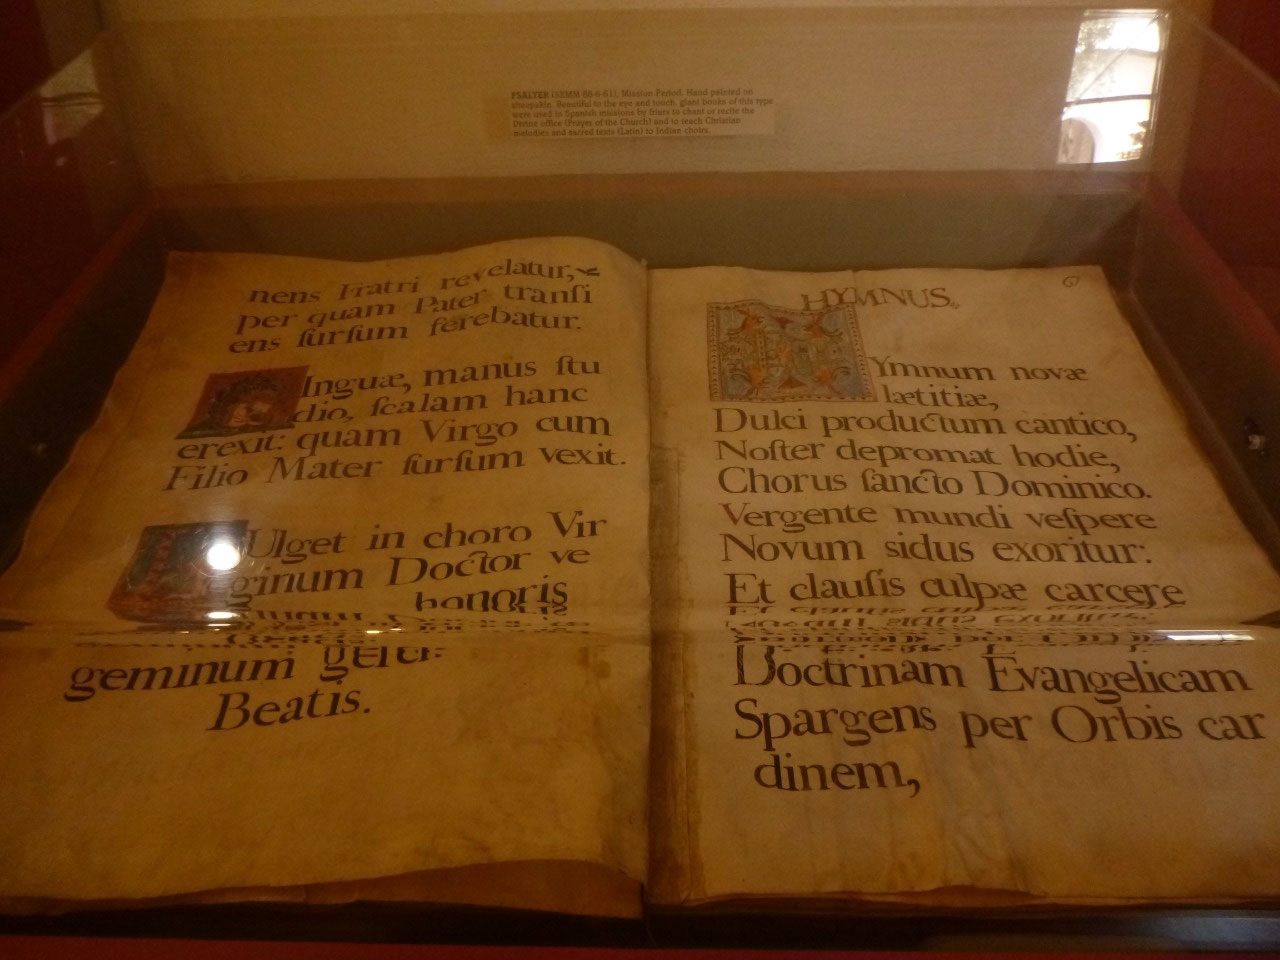 PSALTER (SBMM 68-6-61), Mission Period. Hand painted on
sheepskin. Beautiful to the eye and touch, giant books of this type
were used in Spanish missions by friars to chant or recite the
Divine office (Prayer of the Church) and to teach Christian
melodies and sacred texts (Latin) to Indian choirs.
nens Fratri revelatur,
per quam Pater tranſi
ens ſurſum ferebatur.
Inguæ, manus ſtu
dio, ſcalam hanc
erexit: quam Virgo cum
Filio Mater ſurſum vexit.
Ulget in choro Vir
ginum Doctor ve
honoris
geminum
Beatis.
61
HYMNUS.
HYmnum novæ
lætitiæ,
Dulci productum cantico,
Noſter depromat hodie,
Chorus ſancto Dominico.
Vergente mundi veſpere
Novum sidus exoritur:
Et clauſis culpæ carcere
Doctrinam Evangelicam
Spargens per Orbis car
dinem,